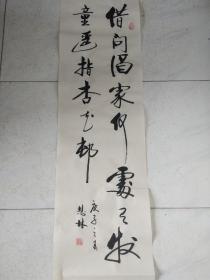 借问酒家何处有牧
童遥指杏花村
庚子之春
慧林